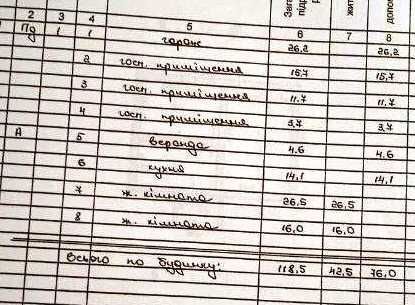 Зага
підр
жит
допом
2 3 4 5 6 7 8
Пд 1 1 гараж 26,2 26,2
2 госп. приміщення 15,7 15,7
3 госп. приміщення 11.7 11.7
4 госп. приміщення 3,7 3,7
А 5 веранда 4.6 4.6
6 кухня 14,1 14,1
7 ж. кімната 26,5 26,5
8 ж. кімната 16,0 16,0
Всього по будинку: 118,5 42,5 76,0